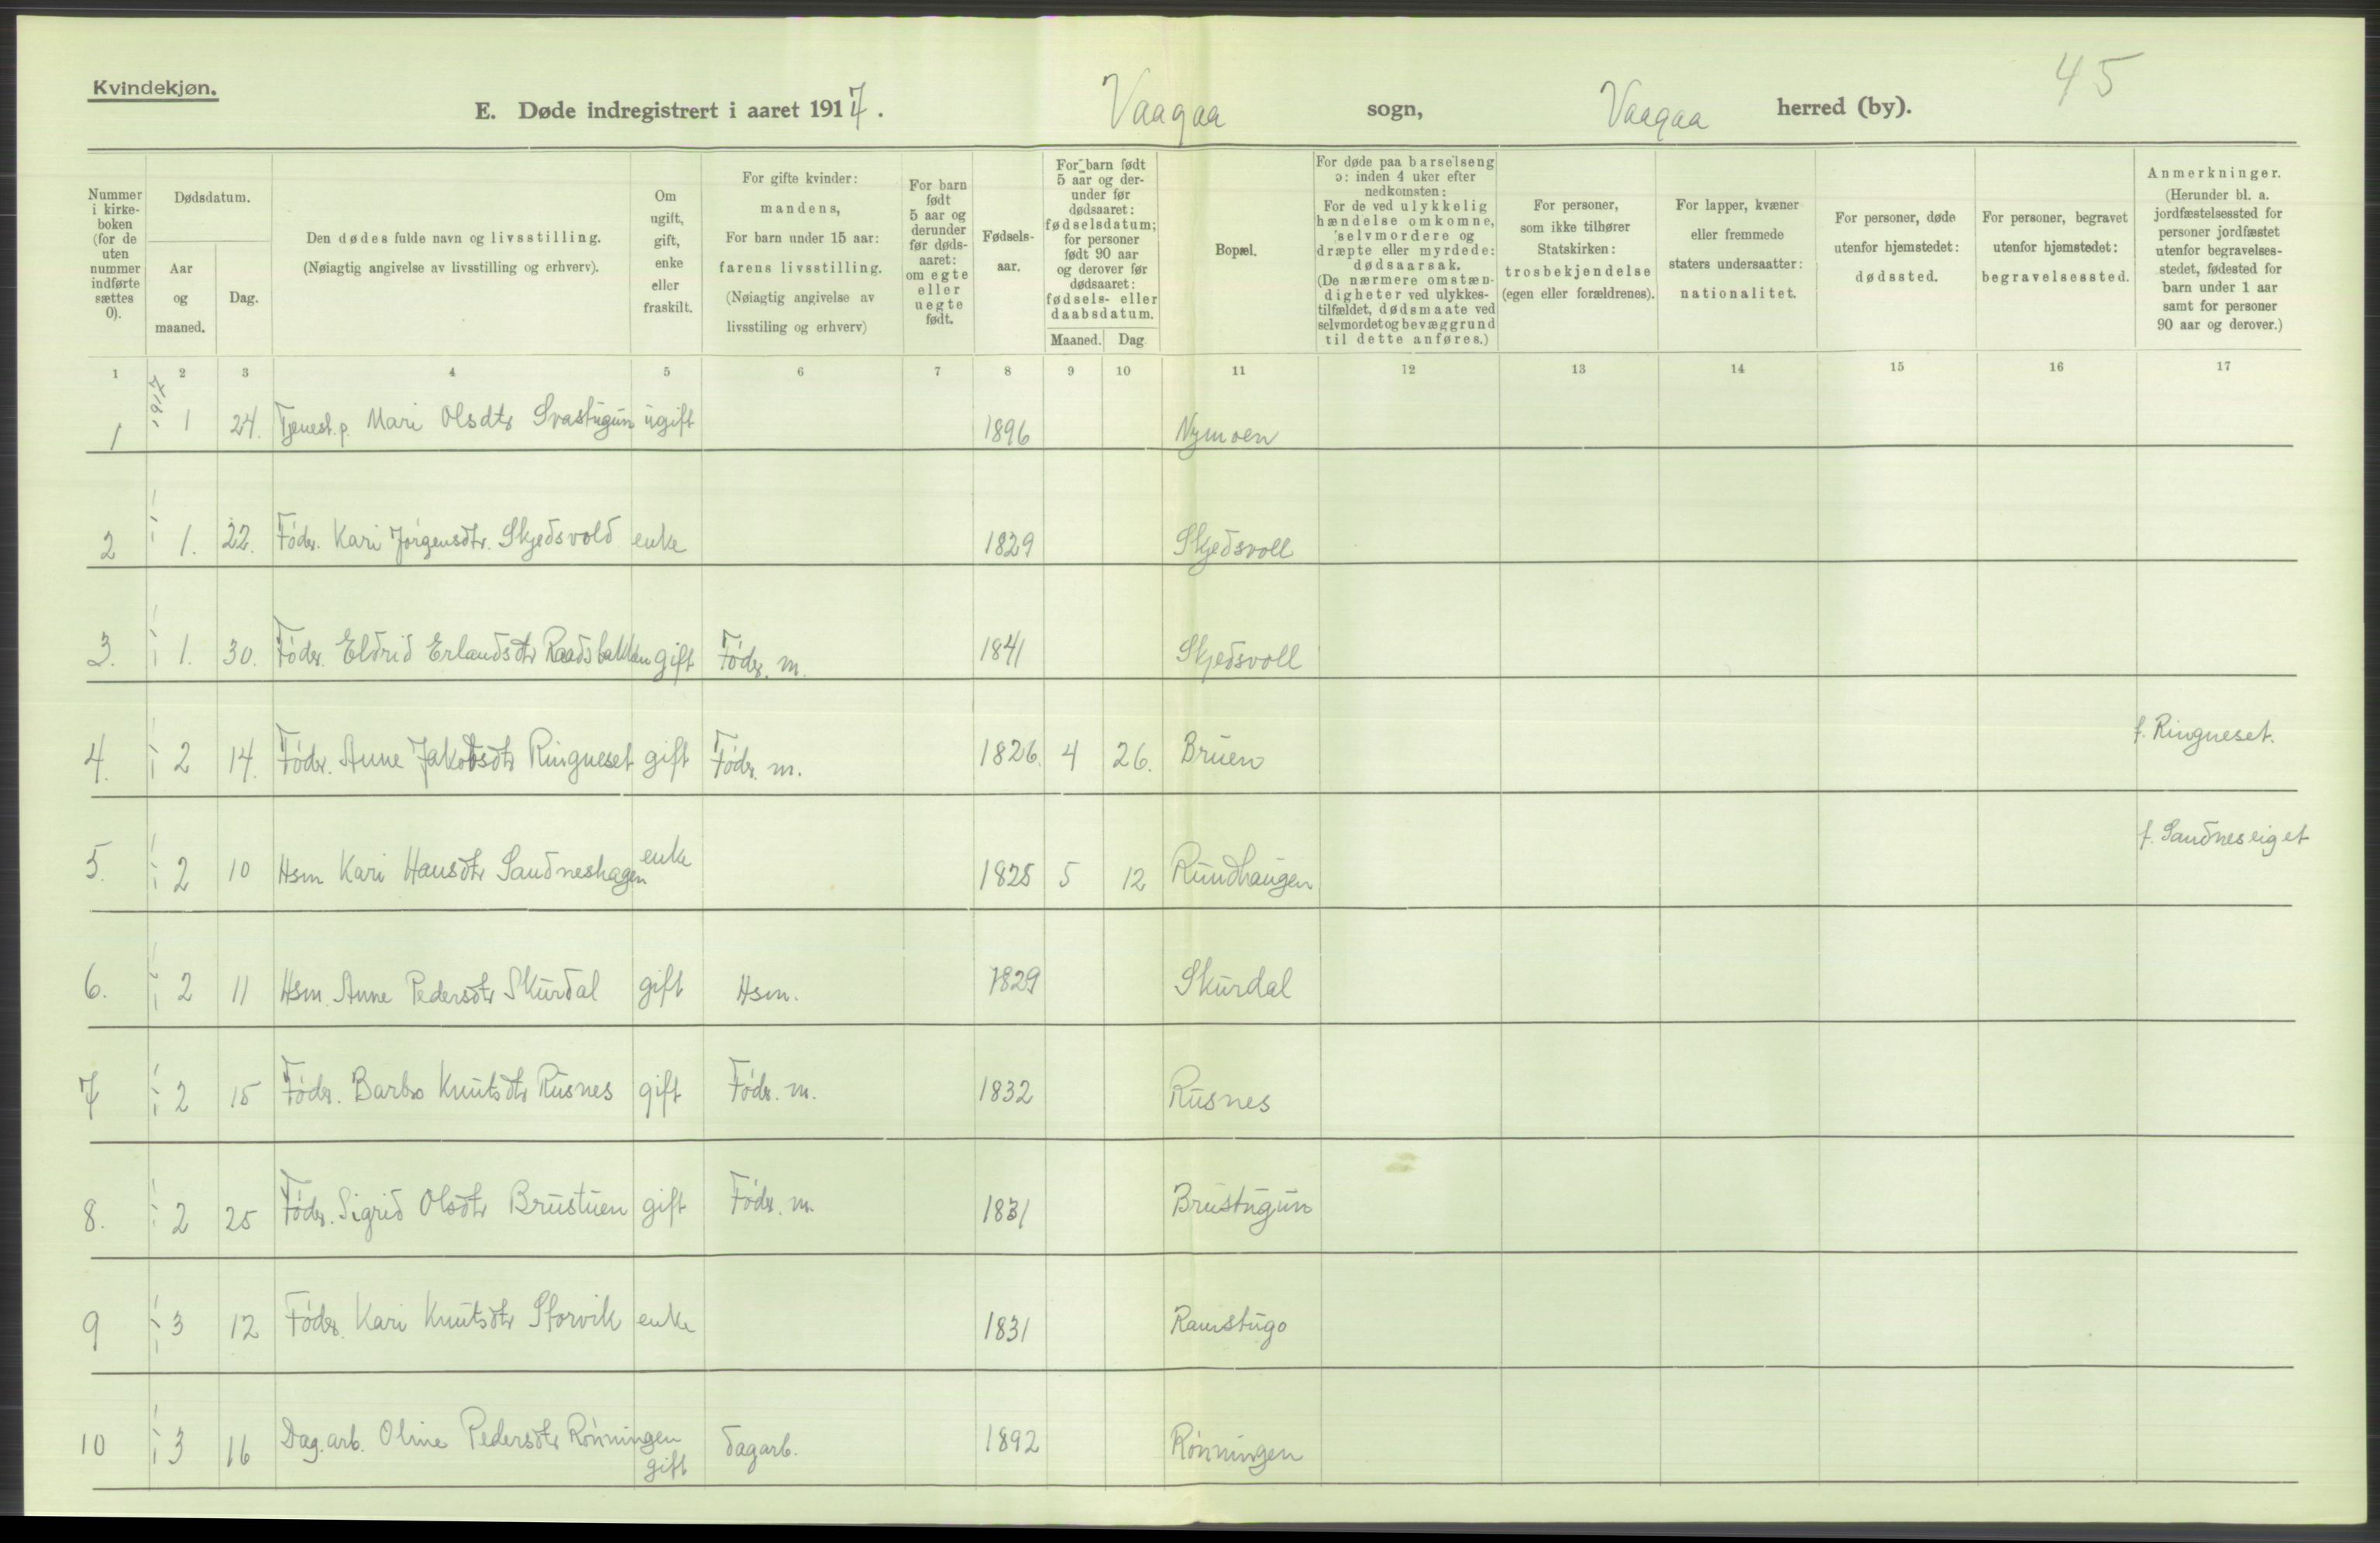 Kvindekjøn.
45
E. Døde indregistrert i aaret 1917. Vaagaa sogn, Vaagaa herred (by).
Nummer i kirke- boken (for de uten nummer indførte sættes 0).
Dødsdatum.
Aar og maaned.
Dag.
Den dødes fulde navn og livsstilling.
(Nøiagtig angivelse av livsstilling og erhverv).
Om ugift, gift, enke eller fraskilt.
For gifte kvinder: mandens,
For barn under 15 aar: farens livsstilling.
(Nøiagtig angivelse av livsstiling og erhverv)
For barn født 5 aar og derunder før døds- aaret: om egte eller uegte født.
Fødsels- aar.
For barn født 5 aar og der- under før dødsaaret: fødselsdatum; for personer født 90 aar og derover før dødsaaret: fødsels- eller daabsdatum.
Maaned. Dag
Bopæl.
For døde paa barselseng ɔ: inden 4 uker efter nedkomsten:
For de ved ulykkelig hændelse omkomne, selvmordere og dræpte eller myrdede: dødsaarsak.
(De nærmere omstæn- digheter ved ulykkes- tilfældet, dødsmaate ved selvmordet og bevæggrund til dette anføres.)
For personer, som ikke tilhører Statskirken: trosbekjendelse (egen eller forældrenes).
For lapper, kvæner eller fremmede staters undersaatter: nationalitet.
For personer, døde utenfor hjemstedet: dødssted.
For personer, begravet utenfor hjemstedet: begravelsessted.
Anmerkninger.
(Herunder bl. a. jordfæstelsessted for personer jordfæstet utenfor begravelses- stedet, fødested for barn under 1 aar samt for personer 90 aar og derover.)
1 2 3 4 5 6 7 8 9 10 11 12 13 14 15 16 17
1 1917 1 24. Tjenest.p. Mari Olsdtr Svastugun ugift 1896 Nymoen
2 -"- 1. 22. Føder. Kari Jørgensdtr. Skjedsvold enke 1829 Skjedsvoll
3. -"- 1. 30. Føder. Eldrid Erlandsdtr Raadsbakken gift Føder. m. 1841 Skjedsvoll
4. -"- 2 14. Føder. Anne Jakobsdtr Ringneset gift Føder. m. 1826. 4 26. Bruen f. Ringneset.
5. -"- 2 10 Hsm Kari Hansdtr Sandneshagen enke 1825 5 12 Rundhaugen f. Sandneseiget
6. -"- 2 11 Hsm. Anne Pedersdtr Skurdal gift Hsm. 1829 Skurdal
7 -"- 2 15 Føder. Barbro Knutsdtr Rusnes gift Føder. m. 1832 Rusnes
8. -"- 2 25 Føder. Sigrid Olsdtr Brustuen gift Føder. m. 1831 Brustugun
9 -"- 3 12 Føder. Kari Knutsdtr Storvik enke 1831 Ramstugo
10 -"- 3 16 Dag.arb. Oline Pedersdtr Rønningen gift dagarb. 1892 Rønningen